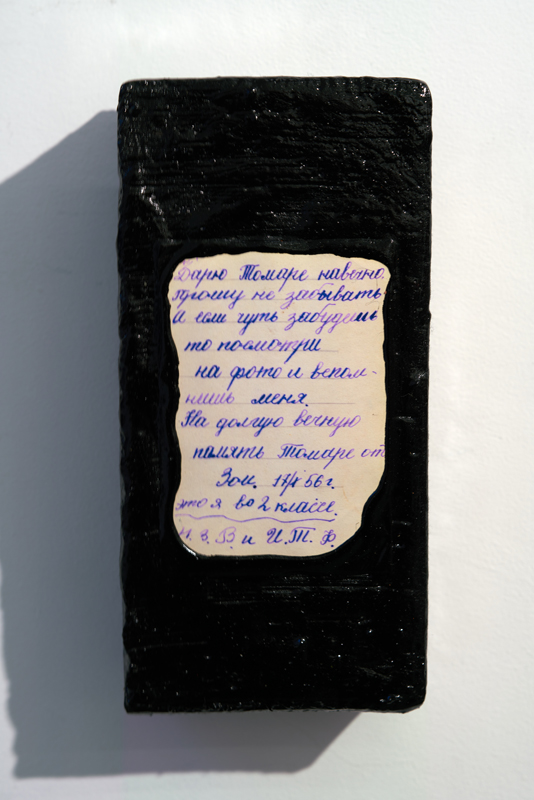 Дарю Томаре навечно.
прошу не забывать
а если чуть забудешь
то посмотри
на фото и вспом-
нишь меня.
На долгую вечную
память Томаре от
Зои. 17/X 56 г.
это я во 2 классе.
В. и И.Т. Ф.